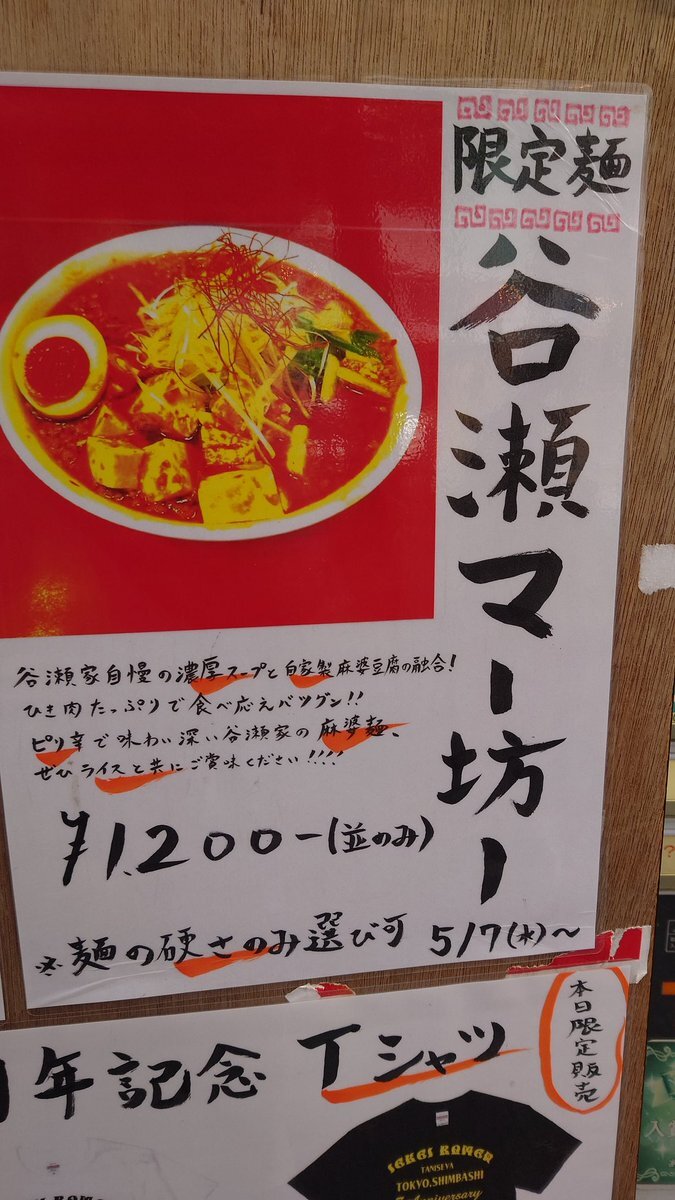 限定麺
谷瀬マー坊ー
谷瀬家自慢の濃厚スープと自家製麻婆豆腐の融合!
ひき肉たっぷりで食べ応えバツグン!!
ピリ辛で味わい深い谷瀬家の麻婆麺、
ぜひライスと共にご賞味ください!!!!
¥1,200-(並のみ)
※麺の硬さのみ選び可 5/7(水)~
年記念 Tシャツ
本日限定販売
TANISEYA
TOKYO.SHIMBASHI
Anniversary